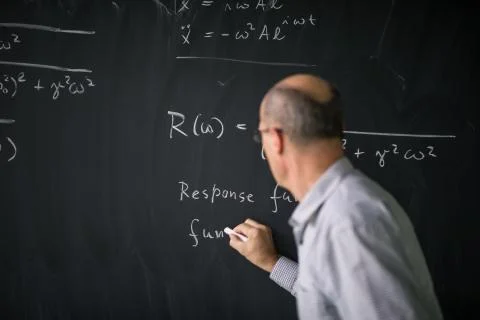 ẋ = iωAe
ẍ = -ω²Ae^iωt
ω²
)² + γ²ω²
)
R(ω) =
+ γ²ω²
Response fu
fun